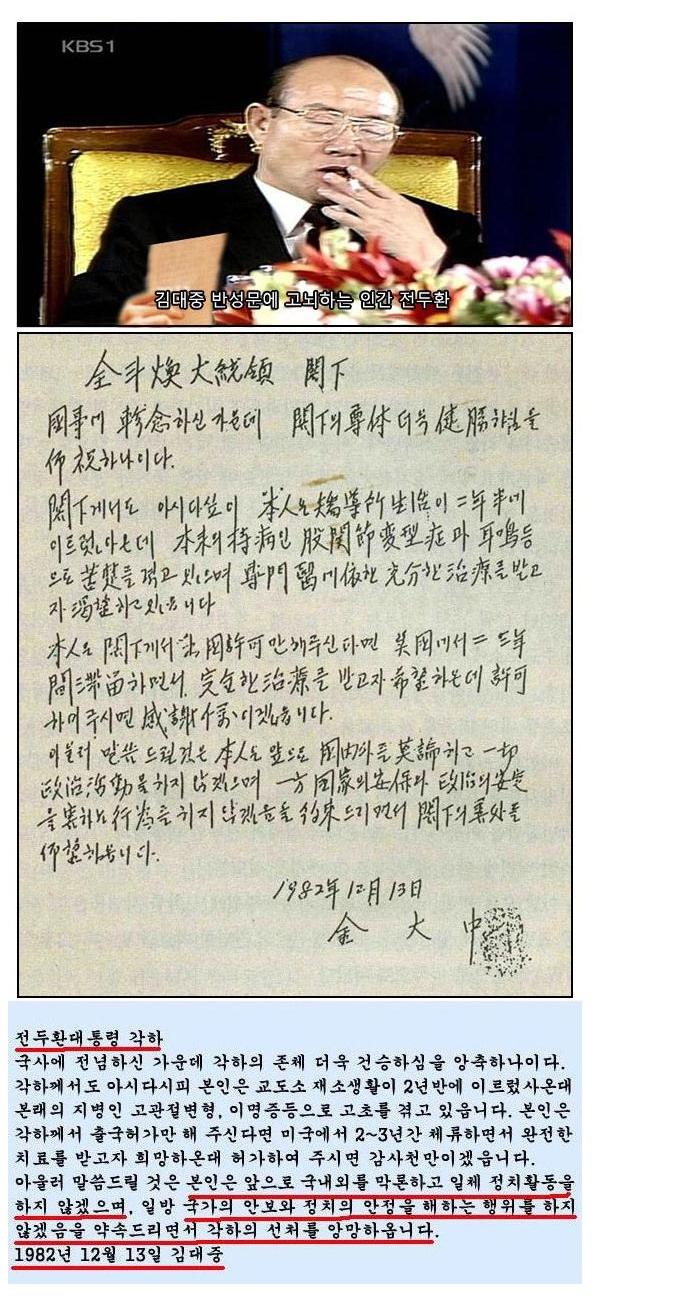 KBS1
김대중 반성문에 고뇌하는 인간 전두환
全斗煥大統領 閣下
國事에 軫念하신 가운데 閣下의 尊体 더욱 健勝하심을
仰祝하나이다.
閣下게서도 아시다싶이 本人은 矯導所 生活이 二年半에
이르렀아온데 本來의 持病인 股関節変型症과 耳鳴等
으로 苦楚를 겪고 있으며 専門醫에 依한 充分한 治療를 받고
자 渴望하고 있읍니다
本人은 閣下게서 出國許可만 해주신다면 美國에서 二 三年
間 滯留하면서 完全한 治療를 받고자 希望하온데 許可
하여 주시면 感謝千萬이겠읍니다.
아울러 말씀 드릴것은 本人은 앞으로 國內外를 莫論하고 一切
政治活動을 하지 않겠으며 一方 国家의 安保와 政治의 安定
을 害하는 行為를 하지 않겠음을 約束드리면서 閣下의 善處를
仰望하옵니다.
1982年 12月 13日
金 大 中
전두환대통령 각하
국사에 전념하신 가운데 각하의 존체 더욱 건승하심을 앙축하나이다.
각하께서도 아시다시피 본인은 교도소 재소생활이 2년반에 이르렀사온대
본래의 지병인 고관절변형, 이명증등으로 고초를 겪고 있읍니다. 본인은
각하께서 출국허가만 해 주신다면 미국에서 2~3년간 체류하면서 완전한
치료를 받고자 희망하온대 허가하여 주시면 감사천만이겠읍니다.
아울러 말씀드릴 것은 본인은 앞으로 국내외를 막론하고 일체 정치활동을
하지 않겠으며, 일방 국가의 안보와 정치의 안정을 해하는 행위를 하지
않겠음을 약속드리면서 각하의 선처를 앙망하옵니다.
1982년 12월 13일 김대중